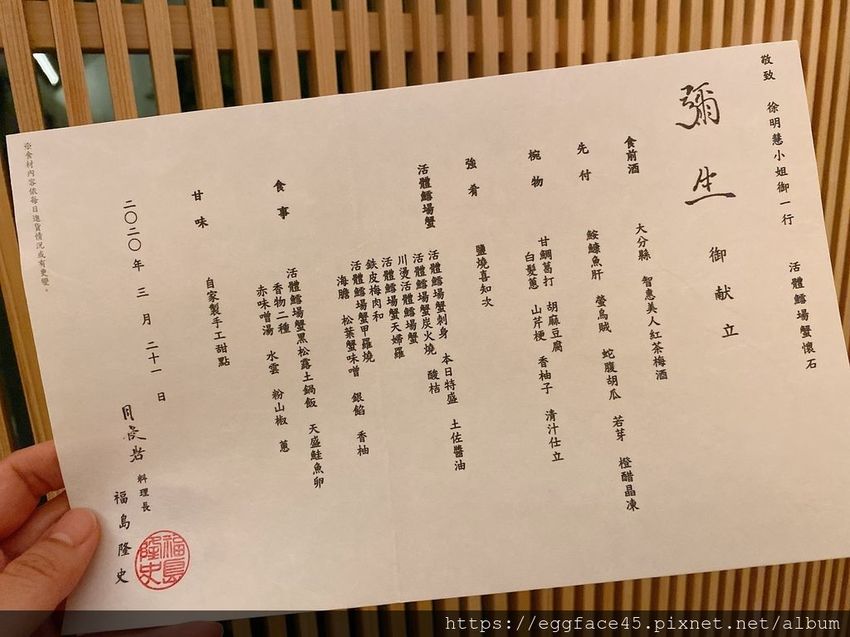 敬致　徐明慧小姐御一行　活體鱈場蟹懷石
彌生　御献立
食前酒　大分縣　智惠美人紅茶梅酒
先付　鮟鱇魚肝　螢烏賊　蛇腹胡瓜　若芽　橙醋晶凍
椀物　甘鯛葛打　胡麻豆腐
白髮蔥　山芹梗　香柚子　清汁仕立
強肴　鹽燒喜知次
活體鱈場蟹　活體鱈場蟹刺身　本日特盛　土佐醬油
活體鱈場蟹炭火燒　酸桔
川燙活體鱈場蟹
活體鱈場蟹天婦羅
鉄皮梅肉和
活體鱈場蟹甲羅燒
海膽　松葉蟹味噌　銀餡　香柚
食事　活體鱈場蟹黑松露土鍋飯　天盛鮭魚卵
香物二種
赤味噌湯　水雲　粉山椒　蔥
甘味　自家製手工甜點
二〇二〇年　三月　二十一日
月夜岩　料理長　福島隆史
福島隆史
※食材內容依每日進貨情況或有更變。
https://eggface45.pixnet.net/album